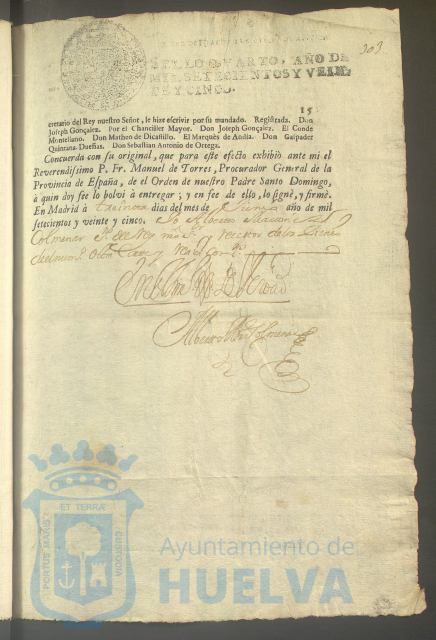 303.
SELLO QVARTO, AÑO DE
MIL SETECIENTOS Y VEIN-
TE Y CINCO.
15
cretario del Rey nuestro Señor, le hize escrivir por su mandado. Registrada. Don
Joseph Gonçalez. Por el Chanciller Mayor. Don Joseph Gonçalez. El Conde
Montellano. Don Matheo de Dicastillo. El Marquès de Andia. Don Gaspar de
Quintana Dueñas. Don Sebastian Antonio de Ortega.
Concuerda con su original, que para este efecto exhibiò ante mi el
Reverendissimo P. Fr. Manuel de Torres, Procurador General de la
Provincia de España, de el Orden de nuestro Padre Santo Domingo,
à quien doy fee lo bolvi à entregar; y en fee de ello, lo signè, y firmè.
En Madrid à treinta dias del mes de Junio año de mil
setecientos y veinte y cinco. Yo Alberto
Colmenar
PORTUS MARIS ET TERRÆ CUSTODIA
Ayuntamiento de
HUELVA